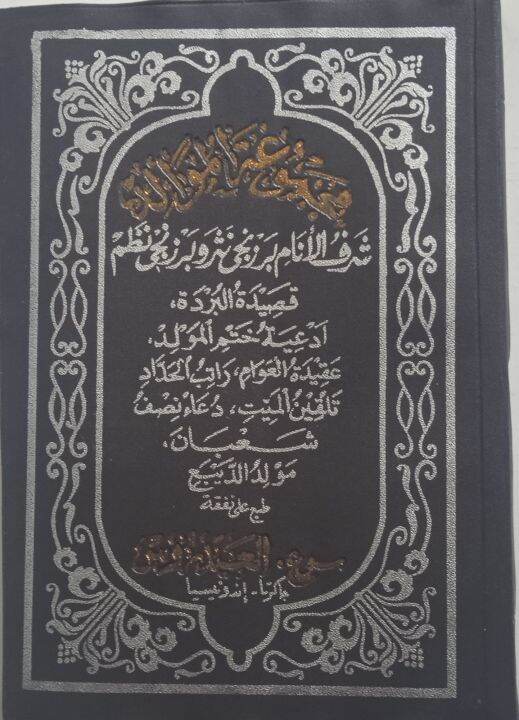 مجموعة مواليد
شرف الأنام برزنجي نثر وبرزنجي نظم
قصيدة البردة،
ادعية ختم المولد،
عقيدة العوام، راتب الحداد
تلقين الميت، دعاء نصف
شعبان،
مولد الديبع
طبع على نفقة
جاكرتا - إندونيسيا